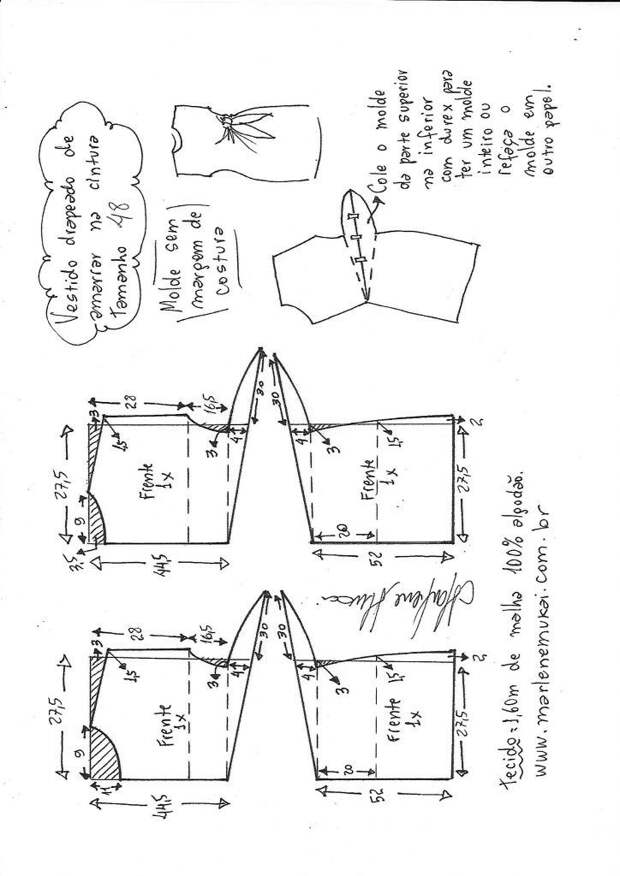 Vestido drapeado de
amarrar na cintura
Tamanho 48
Molde sem
margem de
costura
Cole o molde
da parte superior
na inferior
com durex para
ter um molde
inteiro ou
refaça o
molde em
outro papel.
27,5
3
28
16,5
9
3,5
45
Frente
1x
3
4
30
44,5
30
4
3
Frente
1x
15
20
2
27,5
52
27,5
3
28
16,5
9
11
45
Frente
1x
3
4
30
44,5
30
4
3
Frente
1x
1,5
20
2
27,5
52
Marlene Mukai
Tecido = 1,60m de malha 100% algodão.
www.marlenemukai.com.br